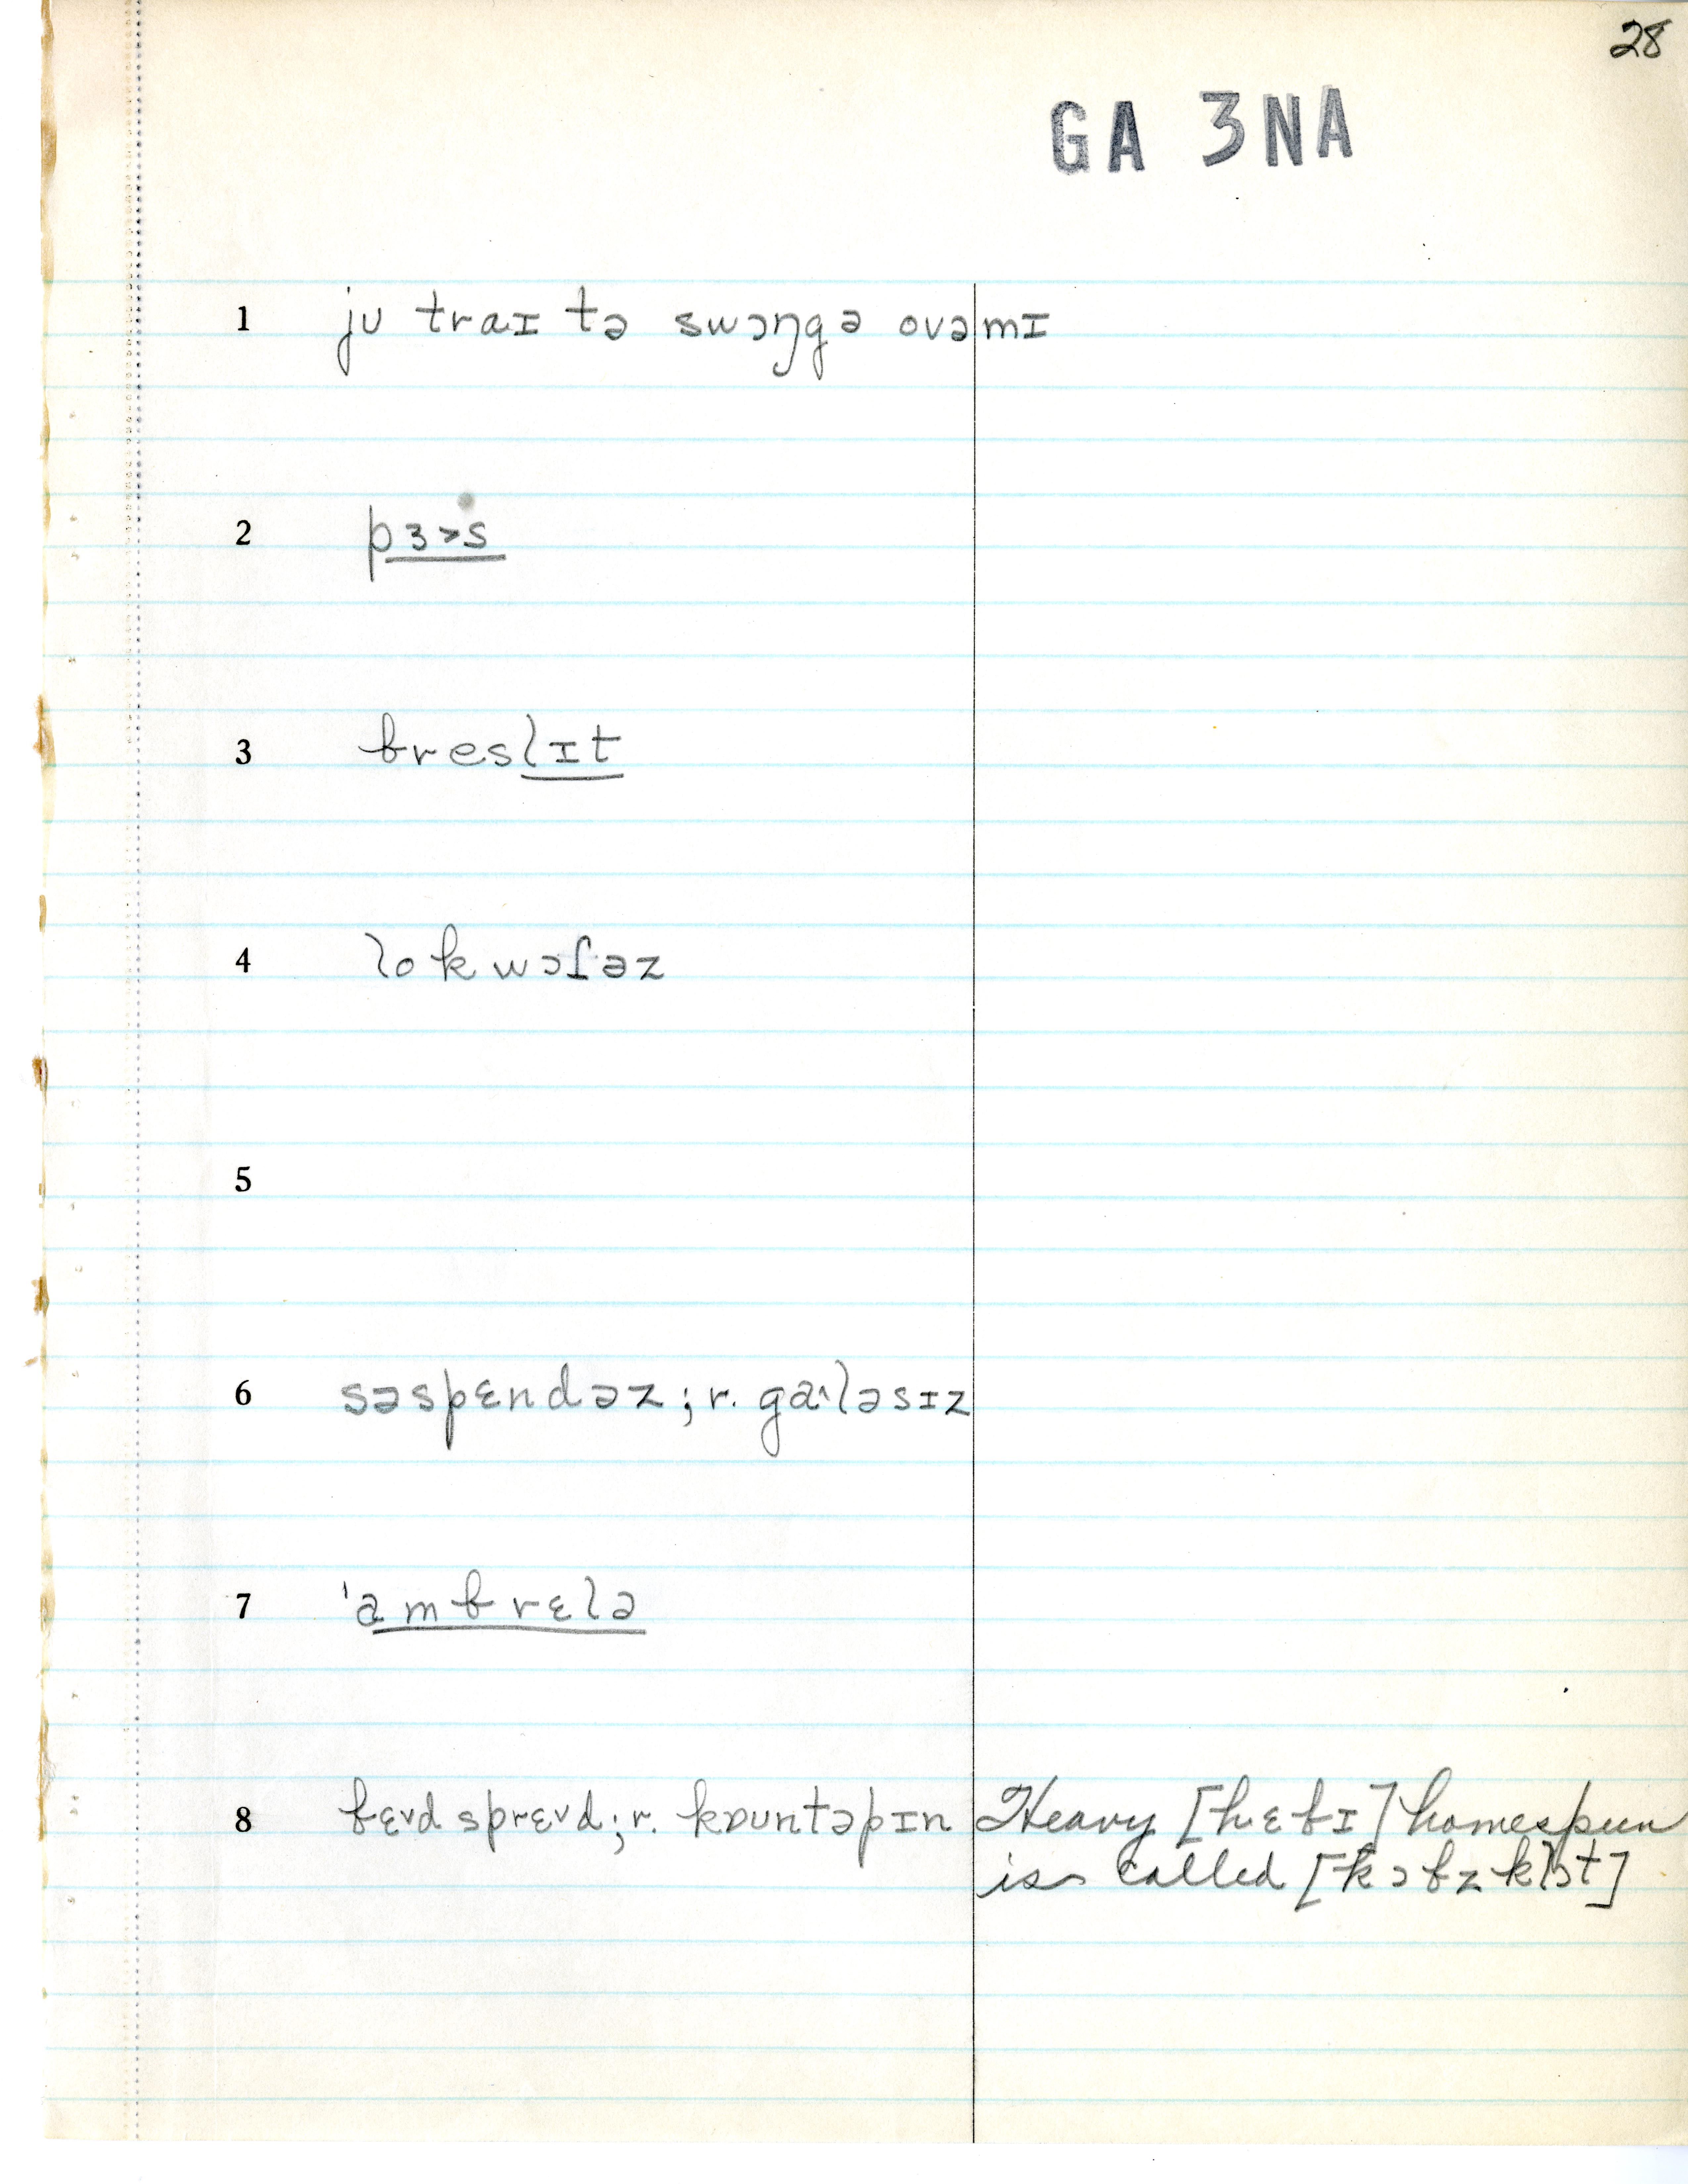 28
GA 3NA
1 jʊ traɪ tə swɔŋgə ovəmɪ
2 pɜ>s
3 breslɪt
4 lokwɔʃəz
5
6 səspɛndəz; r. ga^ləsɪz
7 'ambrɛlə
8 bɛvdsprɛvd; r. kɒuntəpɪn Heavy [hɛbɪ] homespun
is called [kɔbzklɔt]